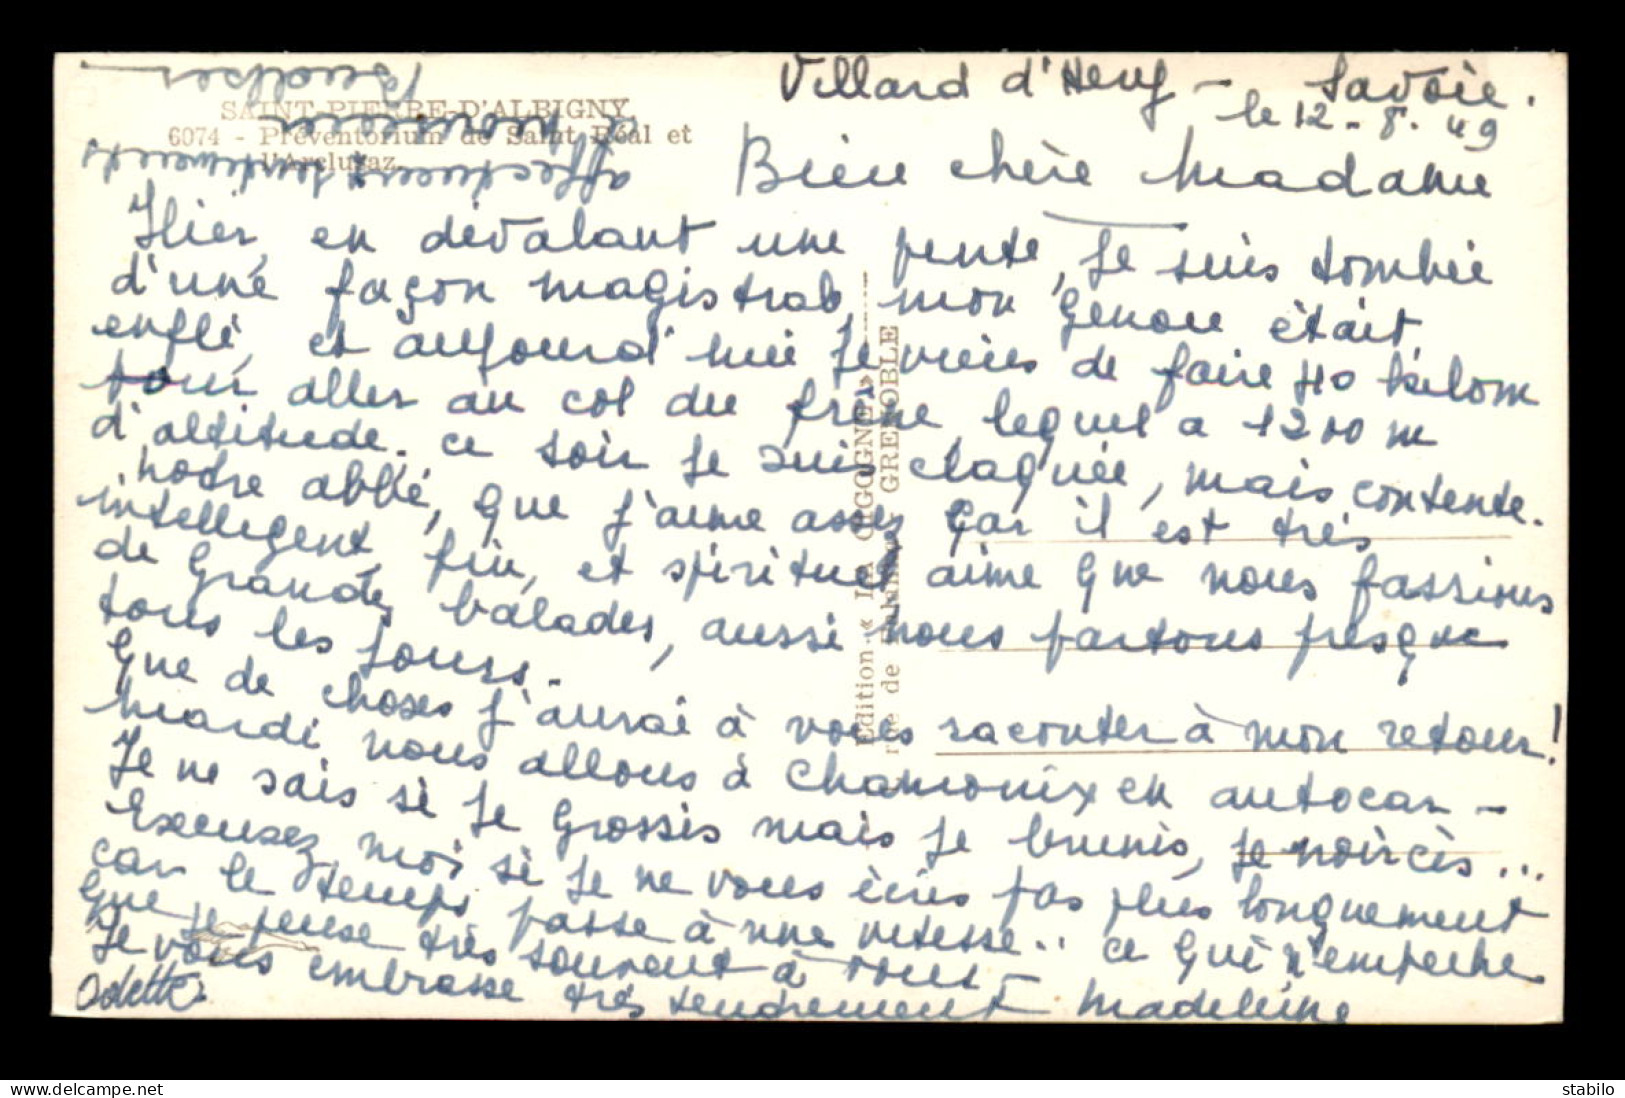 Villard d'Hery - Savoie.
le 12-8-49
SAINT-PIERRE-D'ALBIGNY
6074 - Préventorium de Saint Réal et
l'Arclusaz.
Bien chère Madame
Hier, en dévalant une pente, je suis tombée
d'une façon magistrale, mon genou était
enflé, et aujourd'hui je viens de faire 40 kilom
pour aller au col du frène lequel a 1200 m
d'altitude. ce soir je suis claquée, mais contente.
notre abbé, que j'aime assez car il est très
intelligent, fin, et spirituel aime que nous fassions
de grandes balades, aussi nous partons presque
tous les jours.
Que de choses j'aurai à vous raconter à mon retour!
Mardi nous allons à Chamonix en autocar -
Je ne sais si je grossis mais je brunis, je noircis...
Excusez moi si je ne vous écris pas plus longuement
car le temps passe à une vitesse.. ce qui n'empêche
que je pense très souvent à vous
Je vous embrasse très tendrement Madeleine
Odette
affectueux sentiments
Edition « LA CIGOGNE »
GRENOBLE
stabilo
www.delcampe.net